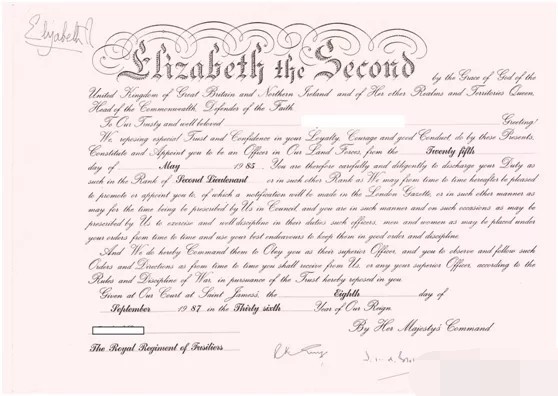 Elizabeth R
Elizabeth the Second
by the Grace of God of the
United Kingdom of Great Britain and Northern Ireland and of Her other Realms and Territories Queen,
Head of the Commonwealth, Defender of the Faith
To Our Trusty and well beloved Greeting!
We, reposing especial Trust and Confidence in your Loyalty, Courage and good Conduct do by these Presents,
Constitute and Appoint you to be an Officer in Our Land Forces, from the Twenty fifth
day of May 1985. You are therefore carefully and diligently to discharge your Duty as
such in the Rank of Second Lieutenant or in such other Rank as We may from time to time hereafter be pleased
to promote or appoint you to, of which a notification will be made in the London Gazette, or in such other manner as
may for the time being be prescribed by Us in Council, and you are in such manner and on such occasions as may be
prescribed by Us to exercise and well discipline in their duties such officers, men and women as may be placed under
your orders from time to time and use your best endeavours to keep them in good order and discipline.
And We do hereby Command them to Obey you as their superior Officer, and you to observe and follow such
Orders and Directions as from time to time you shall receive from Us, or any your superior Officer, according to the
Rules and Discipline of War, in pursuance of the Trust hereby reposed in you.
Given at Our Court at Saint James's, the Eighth day of
September 1987 in the Thirty sixth Year of Our Reign
By Her Majesty's Command
The Royal Regiment of Fusiliers